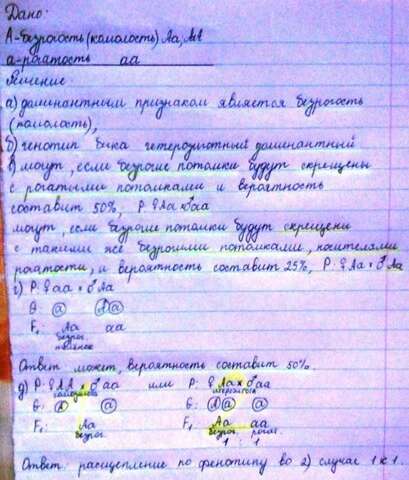 Дано:
А-безрогость (комолость) Аа, АА
а-рогатость аа
Решение
а) доминантным признаком является безрогость
(комолость),
б) генотип быка гетерозиготный доминантный
в) могут, если безрогие потомки будут скрещены
с рогатыми потомками и вероятность
составит 50%, Р: ♀Аа × ♂аа
могут, если безрогие потомки будут скрещены
с такими же безрогими потомками, носителями
рогатости, и вероятность составит 25%, Р: ♀Аа × ♂Аа
г) Р: ♀аа × ♂Аа
G: а А а
F₁: Аа аа
безрог.
Ответ может, вероятность составит 50%.
д) Р: ♀АА × ♂аа или Р: ♀Аа × ♂аа
G: А а G: А а а
F₁: Аа F₁ Аа аа
безрог. безрог. рогат.
1 : 1
Ответ: расщепление по фенотипу во 2) случае 1 к 1.